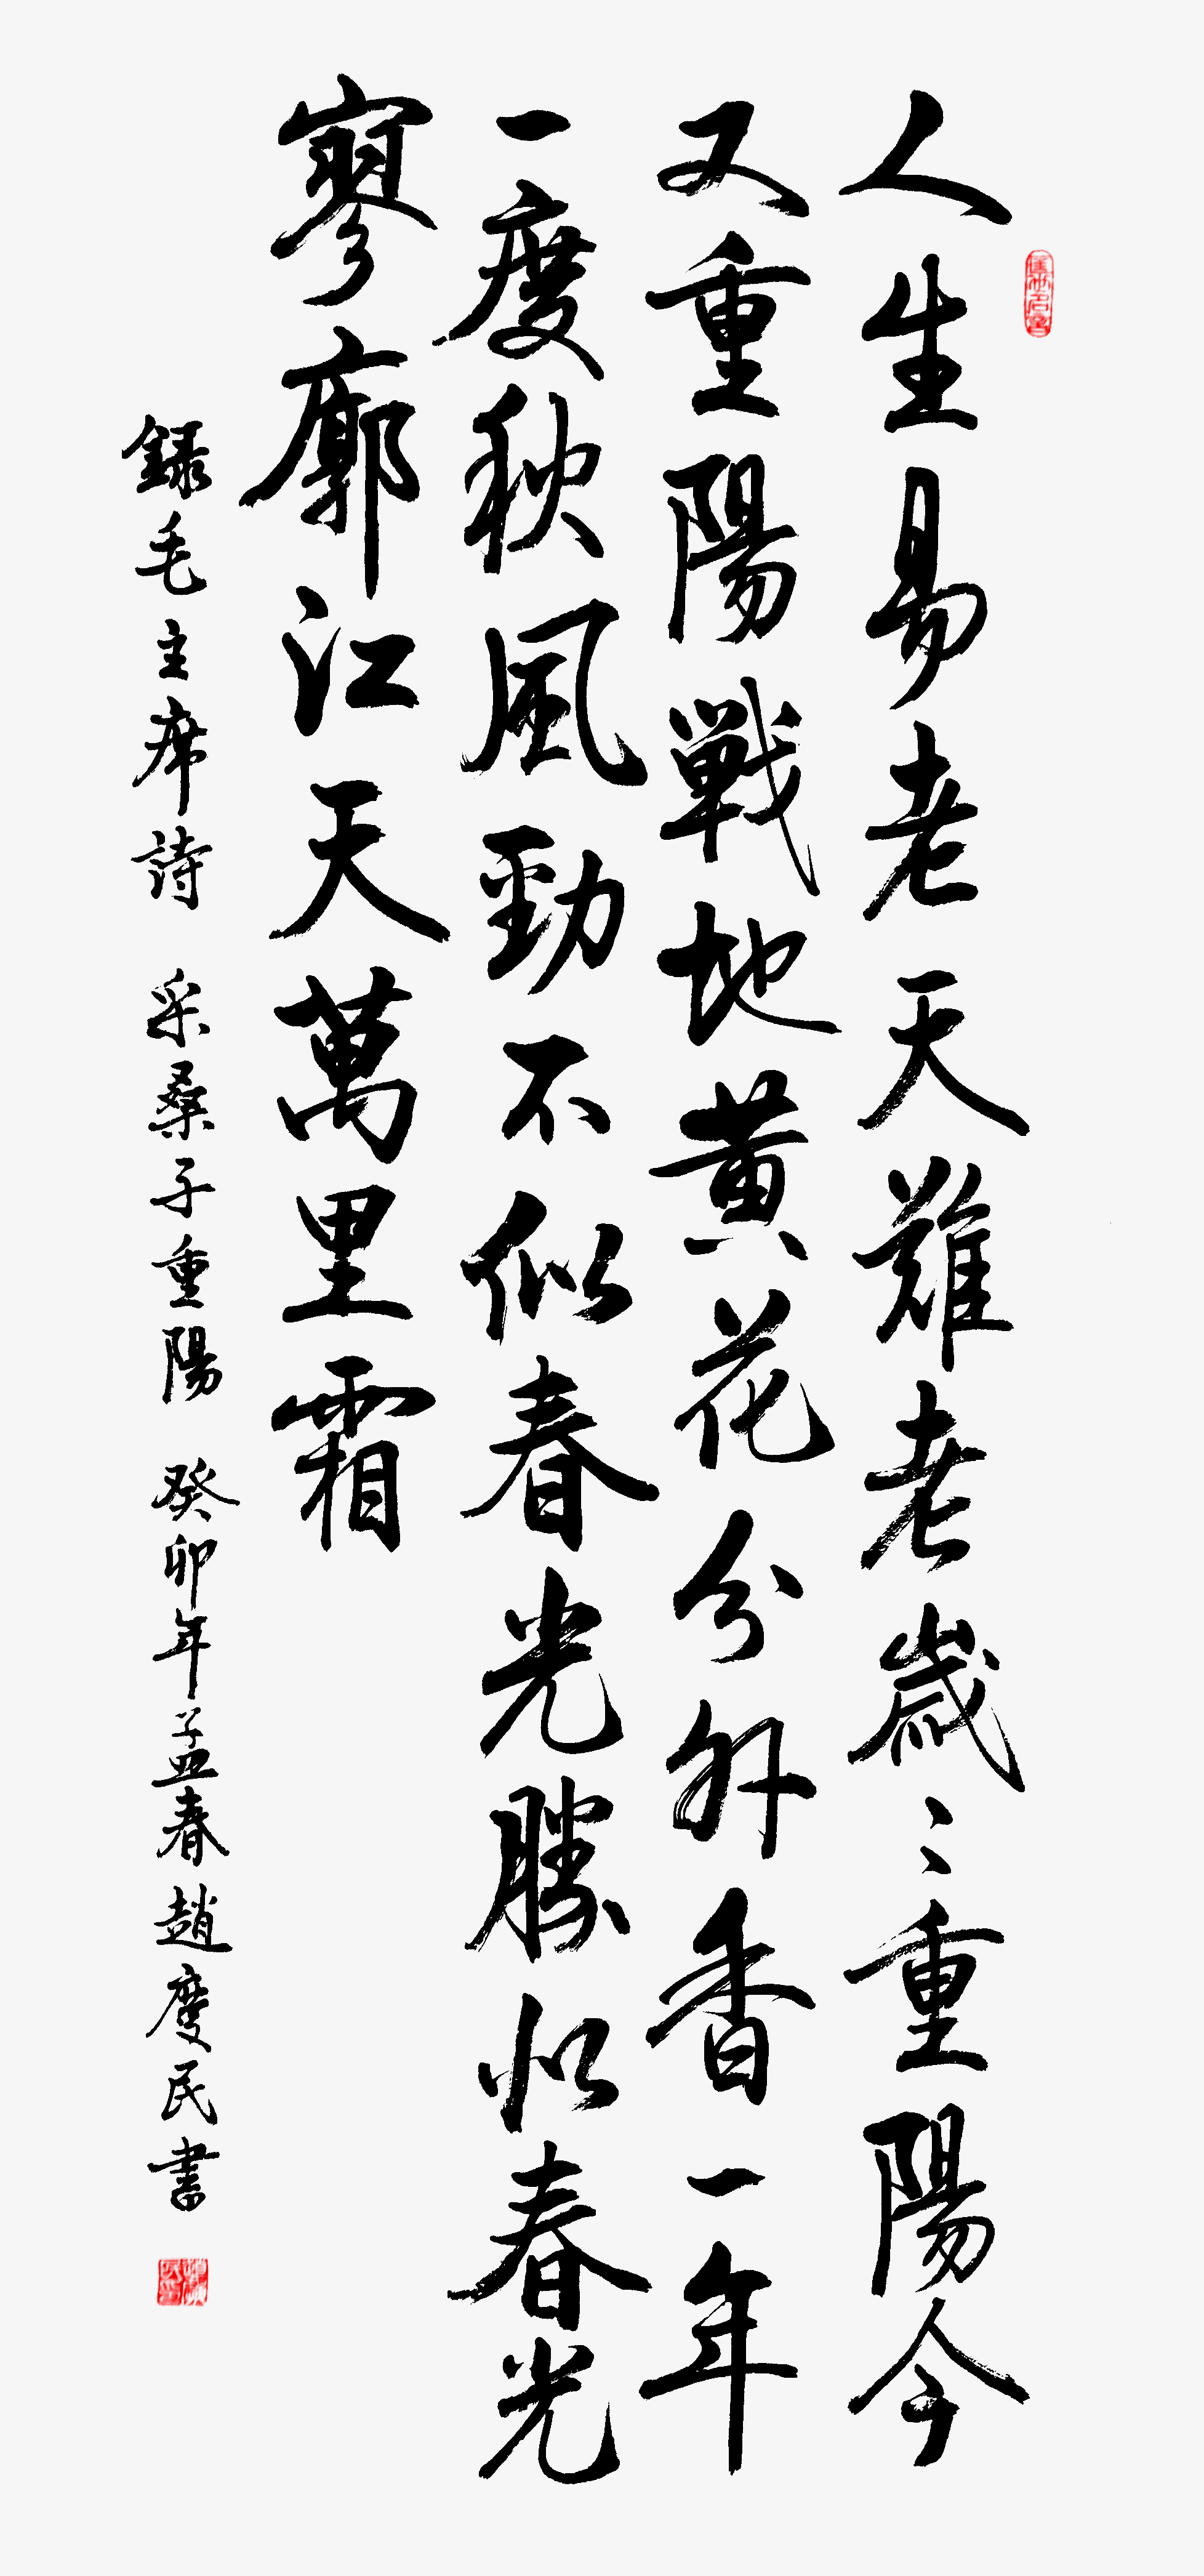 人生易老天難老歲〻重陽今
又重陽戦地黄花分外香一年
一度秋風勁不似春光勝似春光
寥廓江天萬里霜
録毛主席詩 采桑子重陽 癸卯年孟春趙慶民書